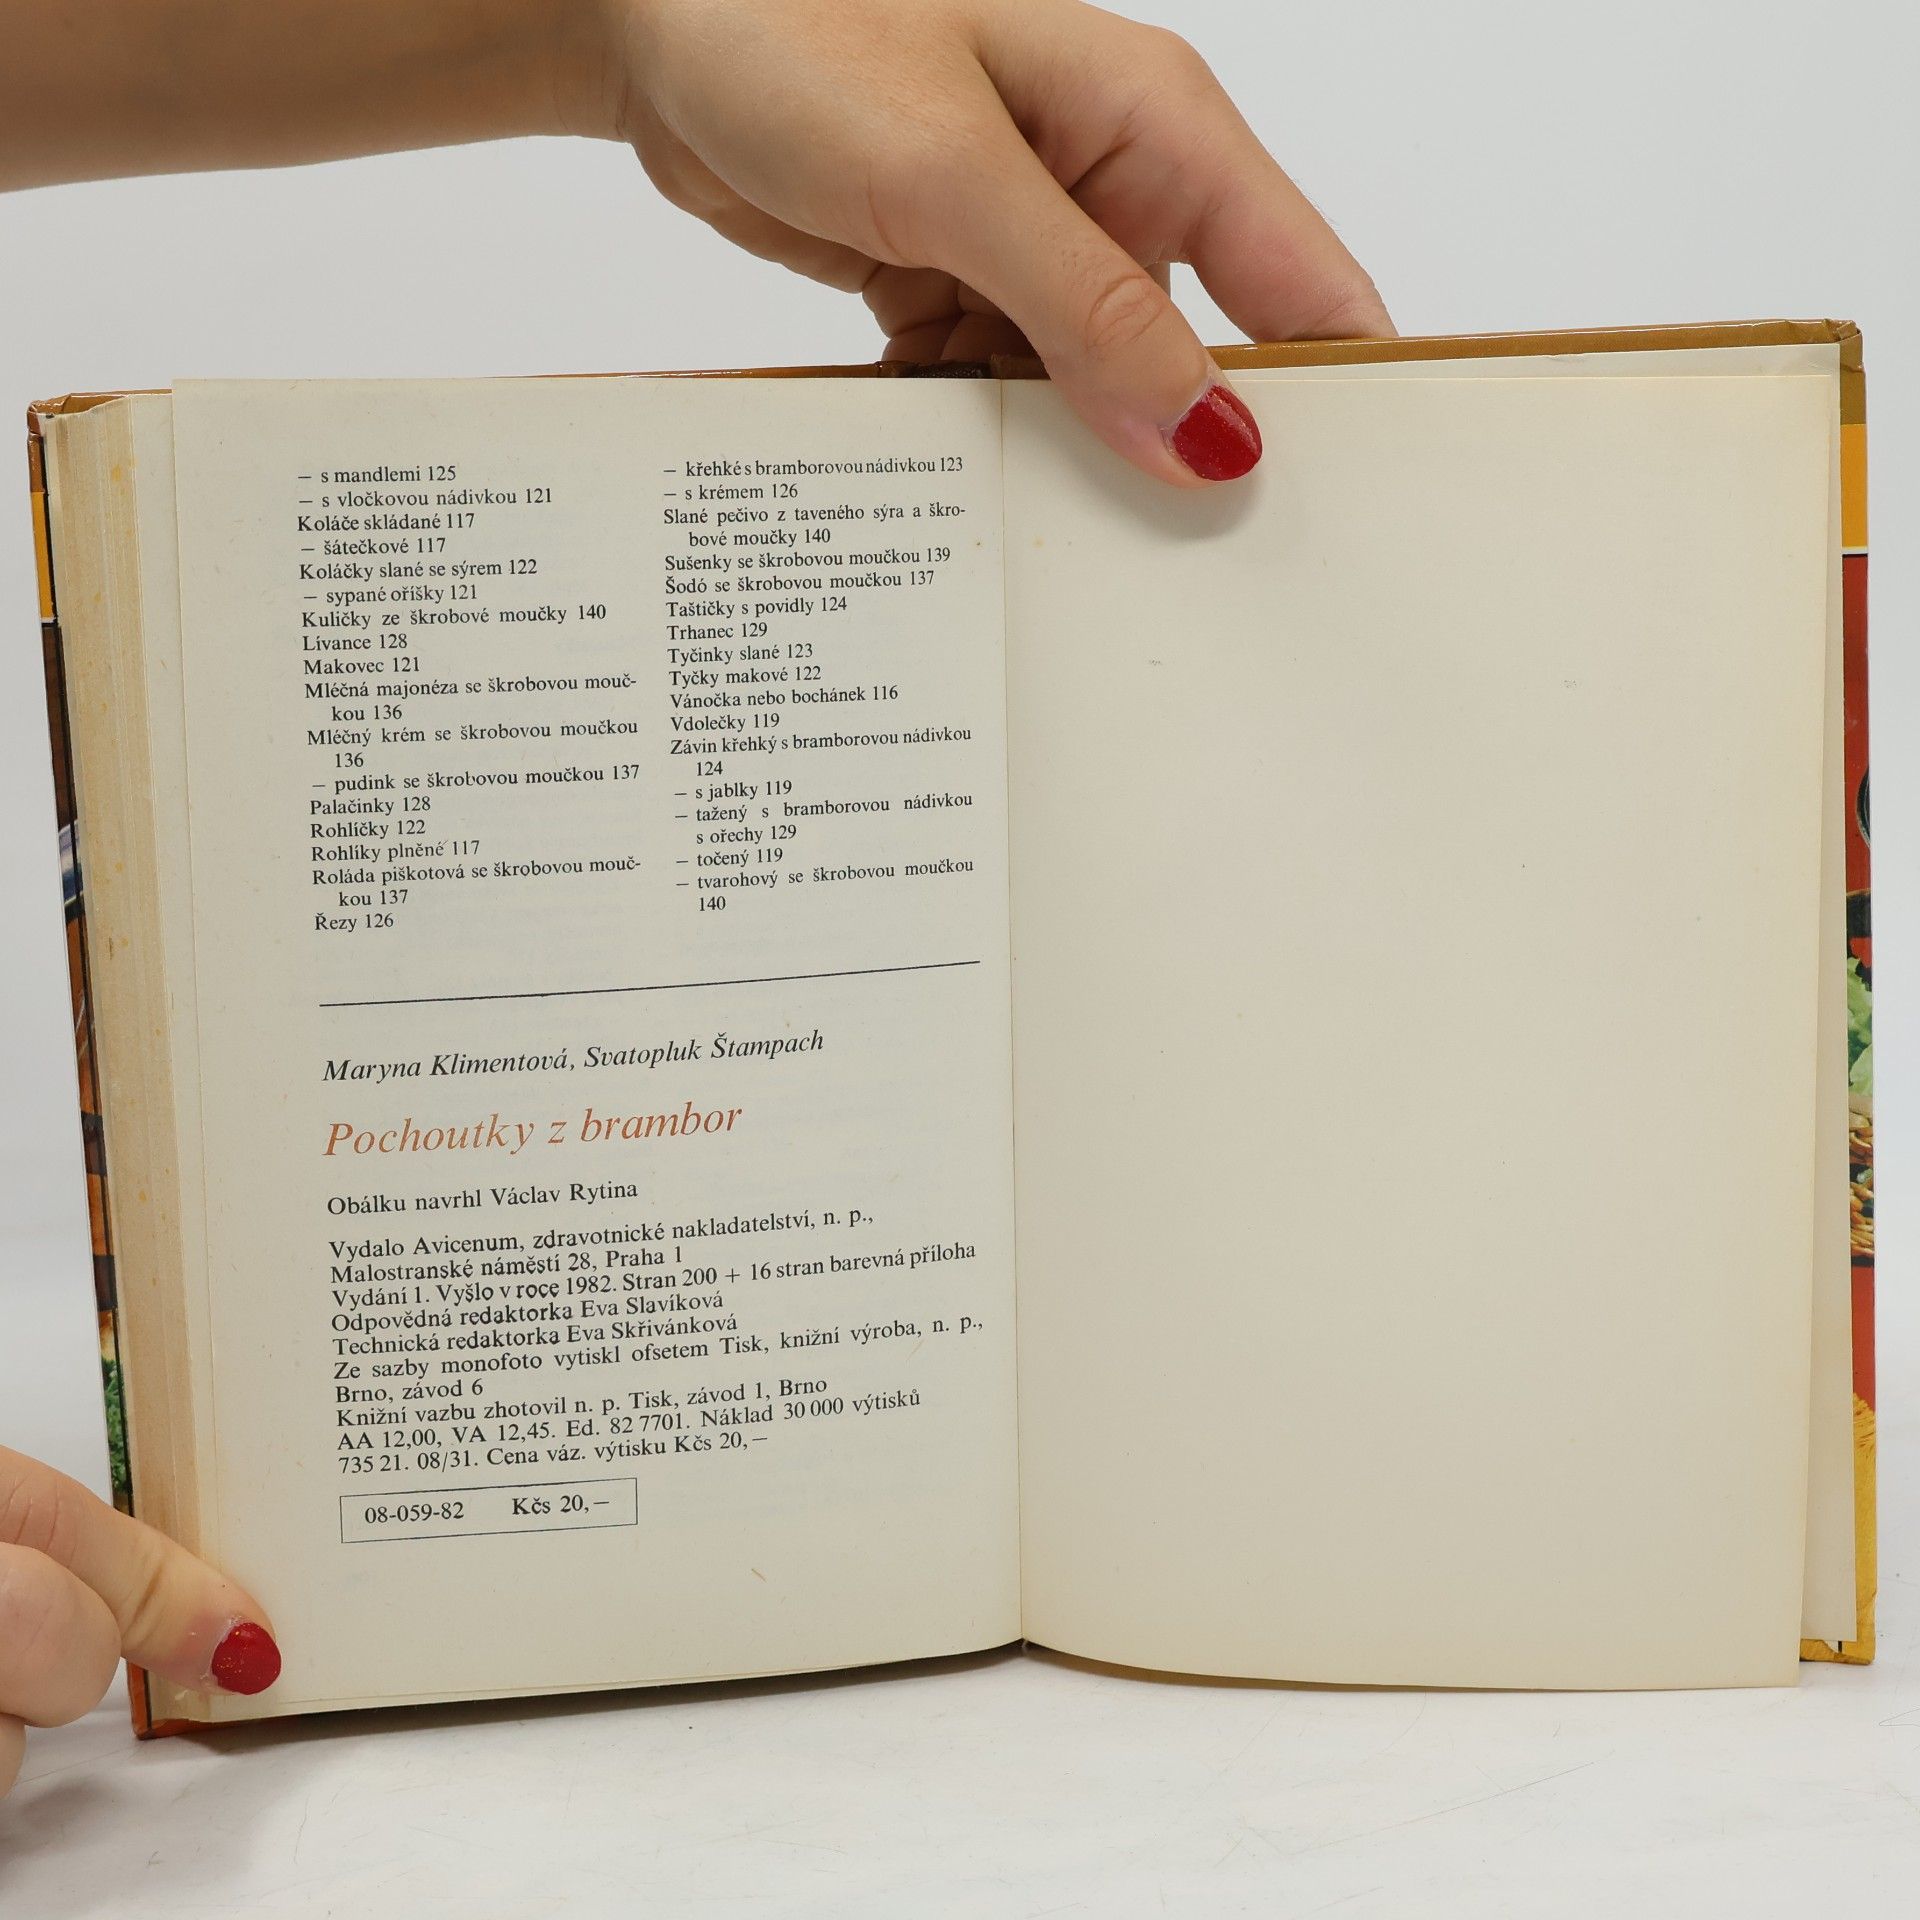 – s mandlemi 125
– s vločkovou nádivkou 121
Koláče skládané 117
– šátečkové 117
Koláčky slané se sýrem 122
– sypané oříšky 121
Kuličky ze škrobové moučky 140
Lívance 128
Makovec 121
Mléčná majonéza se škrobovou mouč-
kou 136
Mléčný krém se škrobovou moučkou
136
– pudink se škrobovou moučkou 137
Palačinky 128
Rohlíčky 122
Rohlíky plněné 117
Roláda piškotová se škrobovou mouč-
kou 137
Řezy 126
– křehké s bramborovou nádivkou 123
– s krémem 126
Slané pečivo z taveného sýra a škro-
bové moučky 140
Sušenky se škrobovou moučkou 139
Šodó se škrobovou moučkou 137
Taštičky s povidly 124
Trhanec 129
Tyčinky slané 123
Tyčky makové 122
Vánočka nebo bochánek 116
Vdolečky 119
Závin křehký s bramborovou nádivkou
124
– s jablky 119
– tažený s bramborovou nádivkou
s ořechy 129
– točený 119
– tvarohový se škrobovou moučkou
140
Maryna Klimentová, Svatopluk Štampach
Pochoutky z brambor
Obálku navrhl Václav Rytina
Vydalo Avicenum, zdravotnické nakladatelství, n. p.,
Malostranské náměstí 28, Praha 1
Vydání 1. Vyšlo v roce 1982. Stran 200 + 16 stran barevná příloha
Odpovědná redaktorka Eva Slavíková
Technická redaktorka Eva Skřivánková
Ze sazby monofoto vytiskl ofsetem Tisk, knižní výroba, n. p.,
Brno, závod 6
Knižní vazbu zhotovil n. p. Tisk, závod 1, Brno
AA 12,00, VA 12,45. Ed. 82 7701. Náklad 30 000 výtisků
735 21. 08/31. Cena váz. výtisku Kčs 20,–
08-059-82 Kčs 20,–